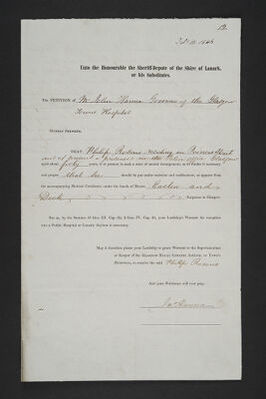 12.
Feb 12 1848
Unto the Honourable the Sheriff-Depute of the Shire of Lanark,
or his Substitutes.
The PETITION of Mr John Governor of the Glasgow
Town's Hospital
HUMBLY SHEWETH,
THAT Philip residing in Princes Street
and at present a prisoner in the Police Office Glasgow
aged forty years, is at present in such a state of mental derangement, as to render it necessary
and proper that he should be put under restraint and confinement, as appears from
the accompanying Medical Certificate, under the hands of Messrs. Easton and
Dick Surgeons in Glasgow.
But as, by the Statutes 55 Geo. III. Cap. 69, & 9 Geo. IV. Cap. 34, your Lordship's Warrant for reception
into a Public Hospital or Lunatic Asylum is necessary,
May it therefore please your Lordship to grant Warrant to the Superintendent
or Keeper of the Glasgow Royal Lunatic Asylum or Town's
Hospital, to receive the said Philip
And your Petitioner will ever pray.